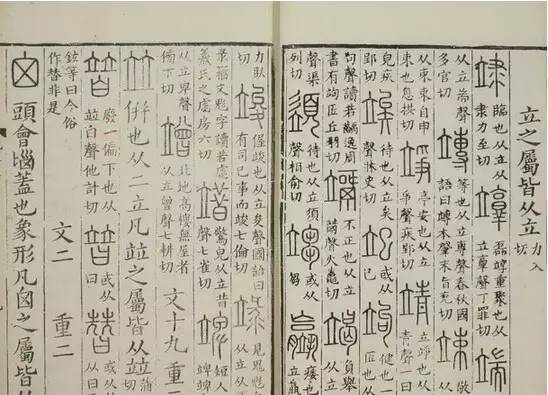 立之屬皆从立 力入切
䇐 臨也从立从隶力至切 磊重聚也从立𦎫聲丁罪切 端
从立耑聲多官切 竱 等也从立專聲春秋國語曰竱本肇末旨兖切 竦 敬
从立从束束自申束也息拱切 竫 亭安也从立爭聲疾郢切 靖 立竫也从立青聲
皃疾郢切 竢 待也从立矣聲牀史切 䇃 或从巳 竘 健也一曰匠也从立
句聲讀若齲逸周書有竘匠丘羽切 竵 不正也从立𥤚聲火鼃切 竭 負舉也从立
聲渠列切 䇓 待也从立須聲相俞切 或从芻聲 痿也从立
力臥切 竣 偓竣也从立夋聲國語曰有司已事而竣七倫切 見鬼鬽
彔籀文鬽字讀若虙羲氏之虙房六切 䇎 驚皃从立昔聲七雀切 短人立婢婢
从立卑聲傍下切 竲 北地高樓無屋者从立曾聲七耕切 文十九 重二
竝 併也从二立凡竝之屬皆从竝 蒲
暜 廢一偏下也从竝白聲他計切 或从曰 或从从曰
鉉等曰今俗作替非是 文二 重二
囟 頭會匘蓋也象形凡囟之屬皆从